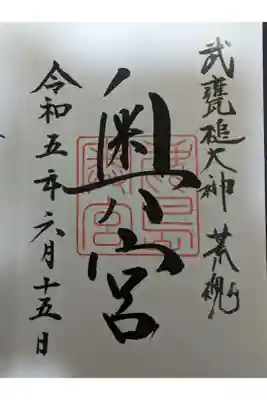 武甕槌大神 荒魂
奥宮
令和五年六月十五日